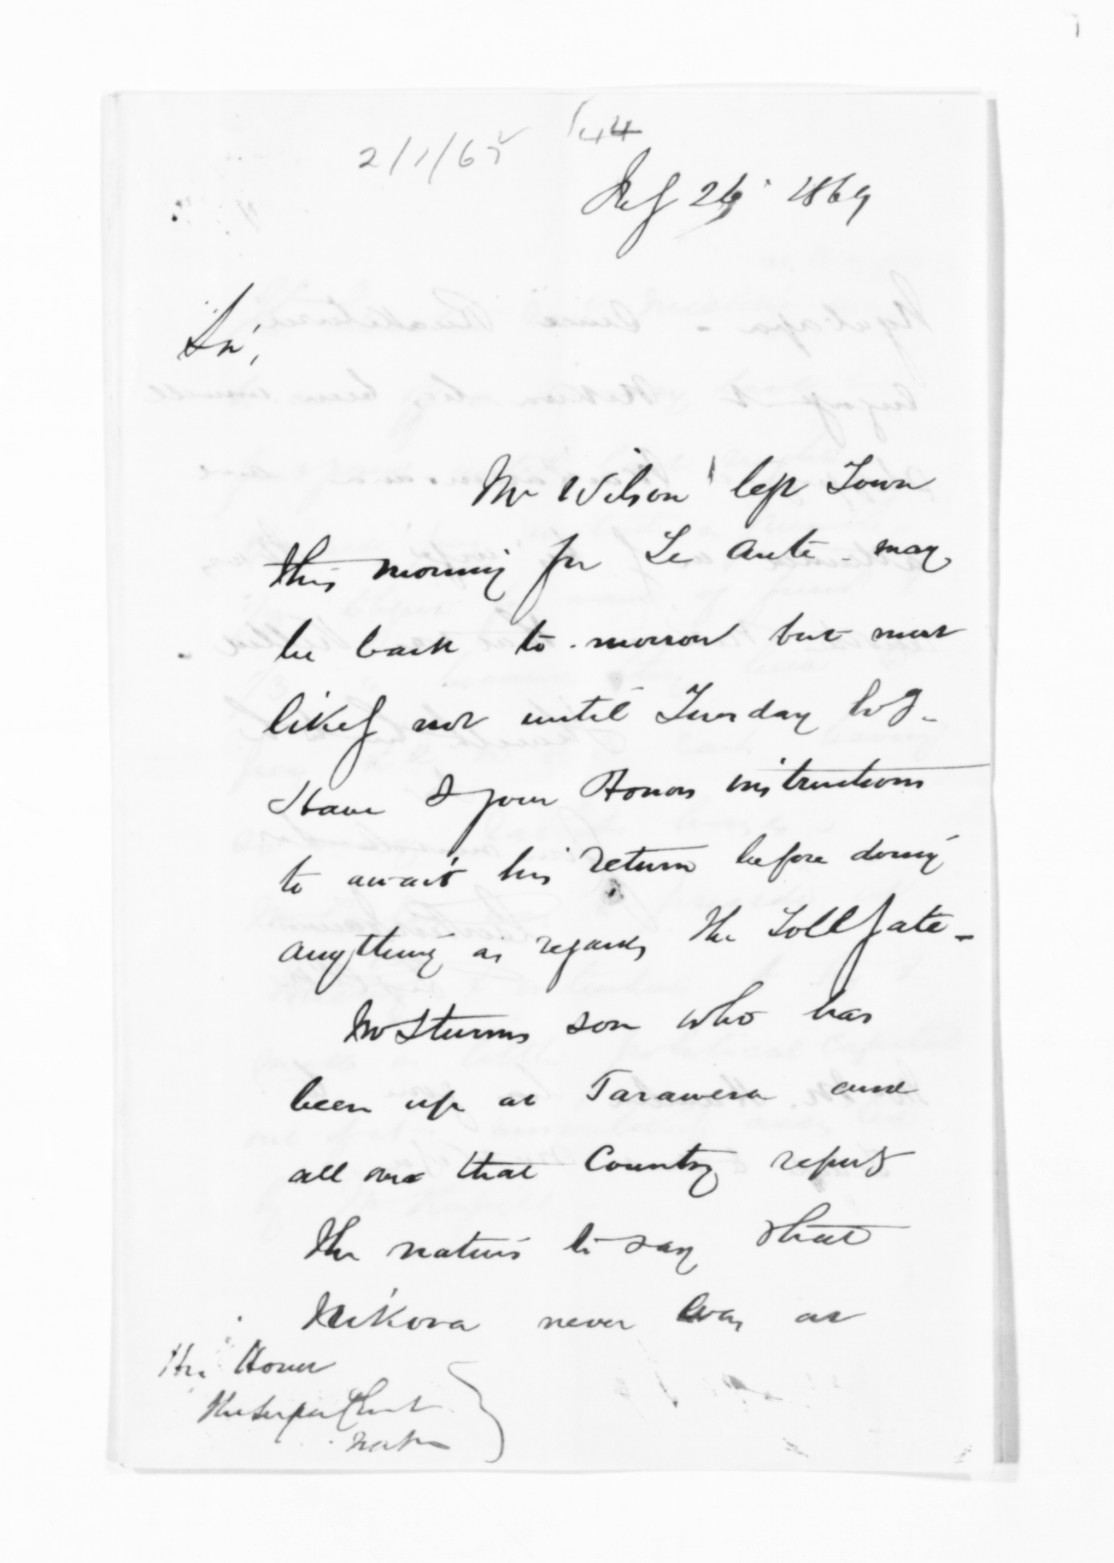 2/1/65 144
26 1869
Sir,
Mr Wilson left Town
this morning for Te Aute - may
be back to-morrow but most
likely not until Tuesday
Have I your Honors instructions
to await his return before doing
anything as regards the Toll gate -
Mr Sturms son who has
been up at Tarawera and
all over that Country reports
the natives to say that
Nikora never was at
His Honor
the Superintendent
Napier